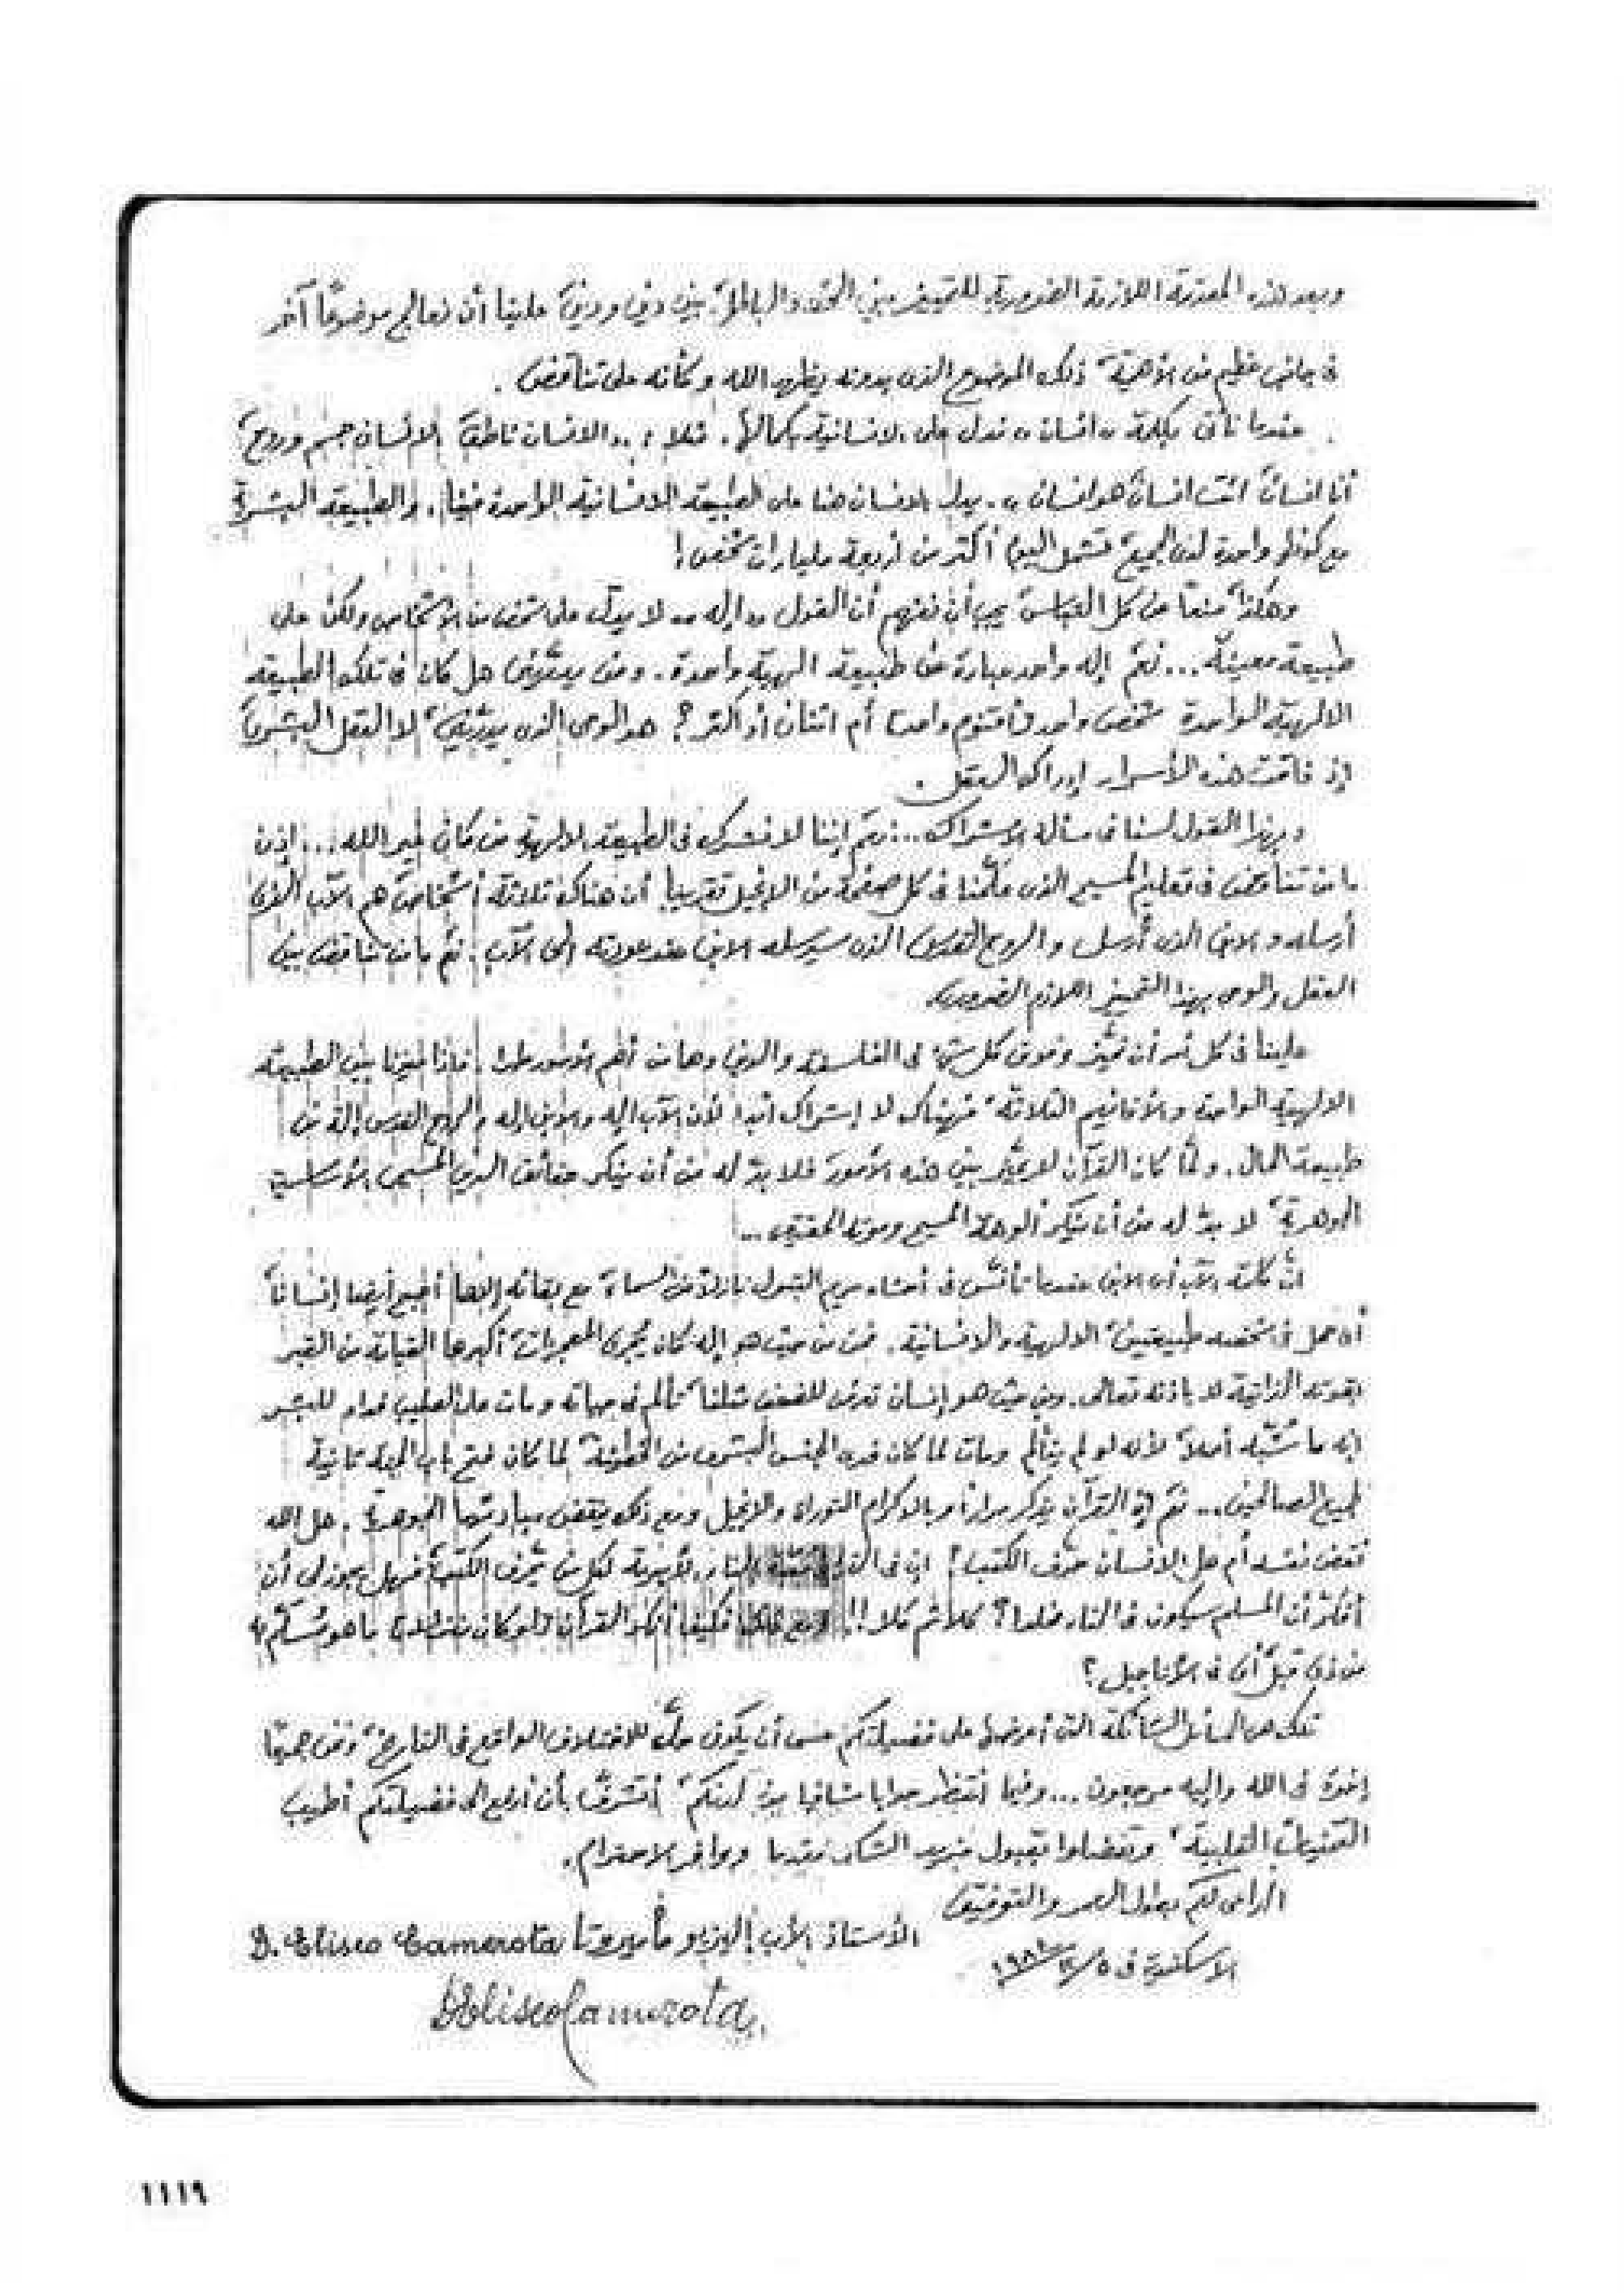 وبعد هذه المقدمة اللازمة الضرورية للتمييز بين الحق والباطل، بين دين ودين، علينا أن نعالج موضوعًا آخر
فى جانب عظيم من الأهمية، ذلك الموضوع الذى بدونه يظهر الله وكأنه على تناقض.
عندما نأتى بكلمة "انسان" ندل على الانسانية بكمالها. مثلا: "الانسان ناطق، الانسان جسم وروح،
أنا انسان، انت انسان، هو انسان". يدل الانسان هنا على الطبيعة الانسانية الواحدة فينا. والطبيعة البشرية
مع كونها واحدة لدى الجميع، تشمل اليوم أكثر من أربعة مليارات شخص!
وهكذا منعًا من كل التباس، يجب أن نفهم أن القول "إله" لا يدل على شخص من الأشخاص ولكن على
طبيعة معينة... نعم إله واحد عبارة عن طبيعة الهية واحدة. ومن يدرى هل كان فى تلك الطبيعة
الالهية الواحدة شخص واحد أقنوم واحد أم اثنان أو أكثر؟ هو الوحى الذى ينبئنى، لا العقل البشرى
إذ فاقت هذه الأسرار إدراك العقل.
وبهذا القول لسنا فى مسألة الاشتراك... نعم إننا لا نشرك فى الطبيعة الالهية من كان غير الله... إذن
ما من تناقض فى تعليم المسيح الذى علّمنا فى كل صفحة من الانجيل تقريبا أن هناك ثلاثة أشخاص هم الآب الذى
أرسله والابن الذى أُرسل والروح القدس الذى سيرسله الابن عند عودته إلى الآب. نعم ما من تناقض بين
العقل والوحى بهذا التمييز اللازم الضرورى
علينا فى كل أمر أن نميّز وفوق كل شئ فى الفلسفة والدين وهما من أهم الأمور طرا. فإذا ميزنا بين الطبيعة
الالهية الواحدة والأقانيم الثلاثة، فهناك لا إشراك أبدا لأن الآب إله والابن إله والروح القدس إله من
طبيعة الحال. ولمّا كان القرآن لا يميّز بين هذه الأمور فلا بدّ له من أن ينكر حقائق الدين المسيحى الأساسية
الجوهرية، لا بدّ له من أن ينكر ألوهة المسيح وموته الحقيقى...
انّ كلمة الآب أى الابن عندما تأنّس فى أحشاء مريم البتول نازلاً من السماء، مع بقائه إلها، أصبح أيضا إنسانًا
أى حمل فى شخصه طبيعتين، الالهية والانسانية. فمن حيث هو إله كان يجرى المعجزات، أكبرها القيامة من القبر
بقوته الذاتية لا باذنه تعالى. ومن حيث هو إنسان تعرض للضعف مثلنا، تألم فى حياته ومات على الصليب فداء للبشر
إنه ما شُبّه أصلاً، لأنه لو لم يتألم ومات لما كان فدى الجنس البشرى من الخطيئة، لما كان فتح باب الجنة ثانية
لجميع الصالحين... ثم إن القرآن يذكر مرارًا بالاكرام التوراة والانجيل ومع ذلك ينقض مبادئها الجوهرية. هل الله
نقض نفسه أم هل الانسان حرّف الكتب؟ النار الأبدية لكل من يحرّف الكتب، فهل يجوز لى أن
أفكّر أن المسلم سيكون فى النار مخلدا؟ كلا ثم كلا!! فكيف ما هو مُسلّم به
من ذى قبل أى فى الأناجيل؟
تلك هى المسائل الشائكة التى أعرضها على فضيلتكم عسى أن يكون حلّ للاختلاف الواقع فى التاريخ، ونحن جميعًا
إخوة فى الله وإليه مرجعون... وفيما أنتظر جوابا شافيا من لدنكم، أتشرف بأن أرفع إلى فضيلتكم أطيب
التمنيات القلبية، وتفضلوا بقبول مزيد الشكر مقدما ووافر الاحترام.
الداعى لكم بطول العمر والتوفيق
الأستاذ الأب إليزيو كاميروتا D. Eliseo Camerota
الاسكندرية فى
D Eliseo Camerota
١١١٩